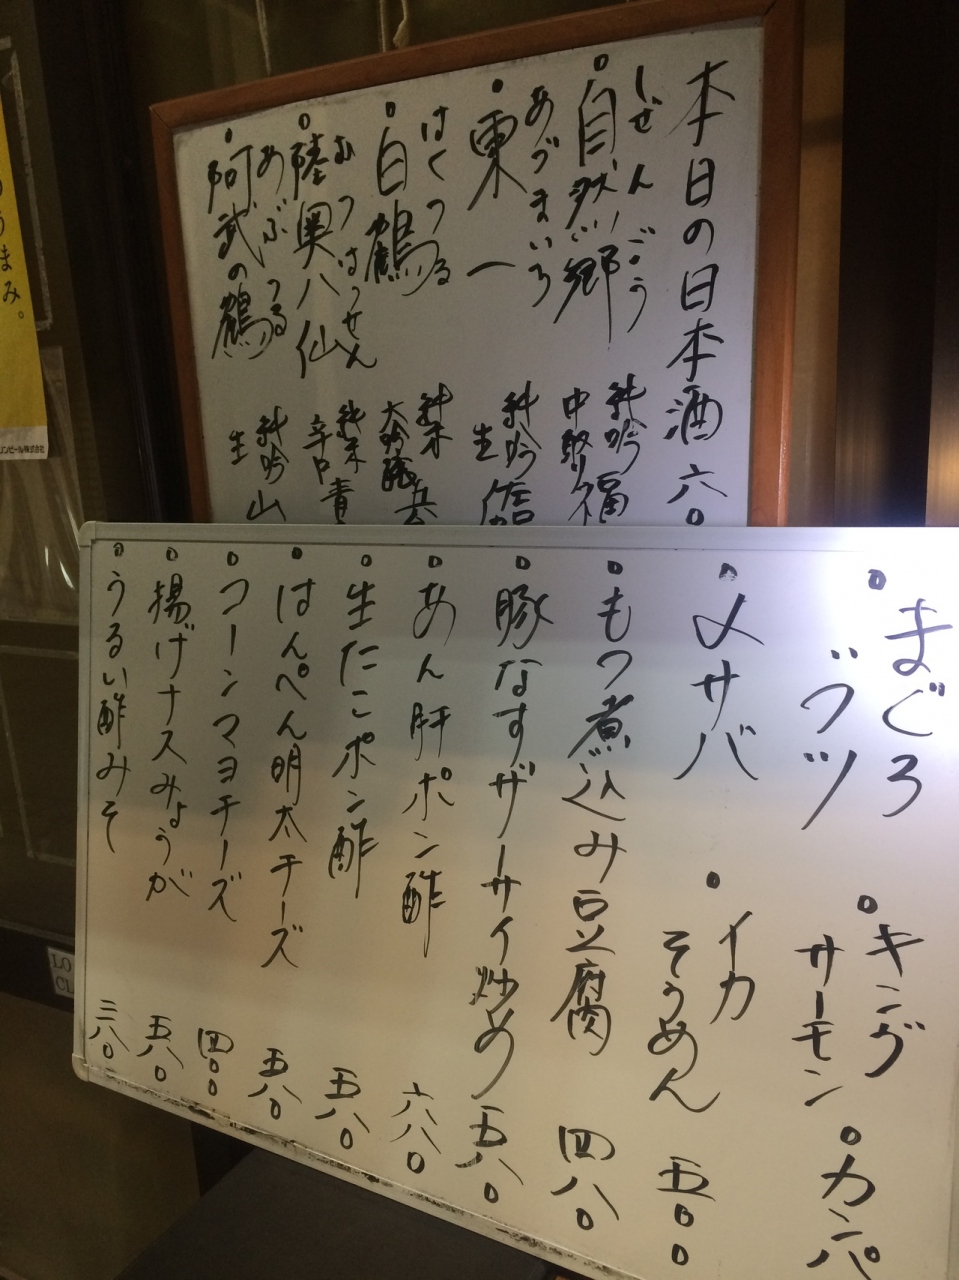 本日の日本酒 六〇
しぜんごう
自然郷 純吟 中取り 福
あづまいち
東一 純吟 生 佐
はくつる
白鶴 純米 大吟醸 兵
むつはっせん
陸奥八仙 純米 辛口 青
あぶつる
阿武の鶴 純吟 生 山
まぐろ
ブツ
キング
サーモン
カンパ
〆サバ
イカ
そうめん 五〇〇
もつ煮込み豆腐 四八〇
豚なすザーサイ炒め 五八〇
あん肝ポン酢 六八〇
生たこポン酢 五八〇
はんぺん明太チーズ 五八〇
コーンマヨチーズ 四〇〇
揚げナスみょうが 五八〇
うるい酢みそ 三八〇
うまみ。
リンビール株式会社
LO
CL